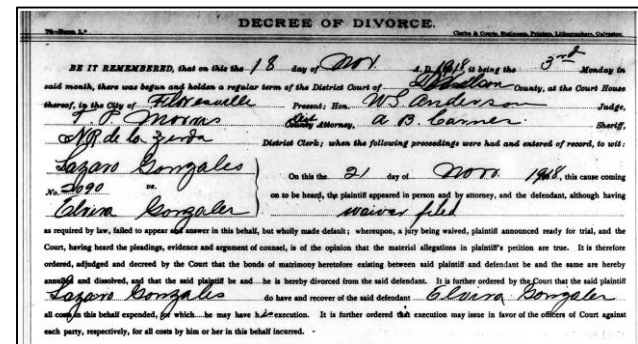 DECREE OF DIVORCE.
Clarke & Courts, Stationers, Printers, Lithographers, Galveston.
BE IT REMEMBERED, that on this the 18 day of Nov. A. D. 1918, it being the 3rd Monday in
said month, there was begun and holden a regular term of the District Court of Wilson County, at the Court House
thereof, in the City of Floresville Present; Hon. W. S. Anderson Judge,
Morris Dist Attorney, A. B. Carner Sheriff,
N R de la Zerda District Clerk; when the following proceedings were had and entered of record, to wit:
Lazaro Gonzales
No. 2090 vs.
Elvira Gonzales
On this the 21 day of Nov. 1918, this cause coming
on to be heard, the plaintiff appeared in person and by attorney, and the defendant, although having
waivar filed
as required by law, failed to appear and answer in this behalf, but wholly made default; whereupon, a jury being waived, plaintiff announced ready for trial, and the
Court, having heard the pleadings, evidence and argument of counsel, is of the opinion that the material allegations in plaintiff's petition are true. It is therefore
ordered, adjudged and decreed by the Court that the bonds of matrimony heretofore existing between said plaintiff and defendant be and the same are hereby
annulled and dissolved, and that the said plaintiff be and he is hereby divorced from the said defendant. It is further ordered by the Court that the said plaintiff
Lazaro Gonzales do have and recover of the said defendant Elvira Gonzales
all costs in this behalf expended, for which he may have his execution. It is further ordered that execution may issue in favor of the officers of Court against
each party, respectively, for all costs by him or her in this behalf incurred.